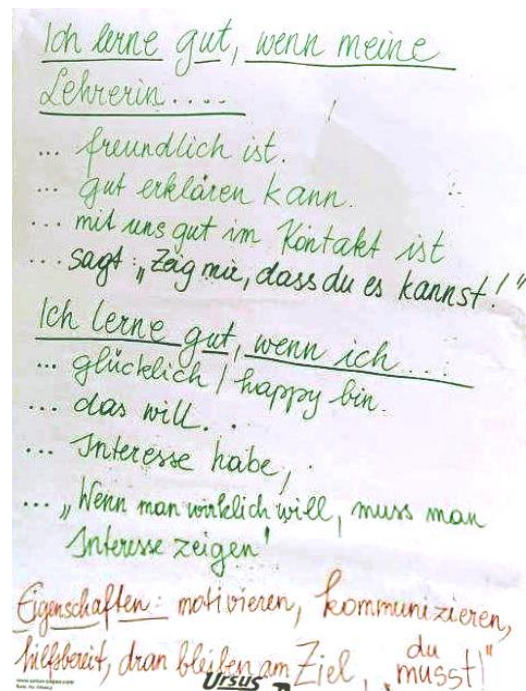 Ich lerne gut, wenn meine
Lehrerin....
... freundlich ist.
... gut erklären kann.
... mit uns gut im Kontakt ist
... sagt: „Zeig mir, dass du es kannst!"
Ich lerne gut, wenn ich...
... glücklich / happy bin.
... das will.
... Interesse habe,
... „Wenn man wirklich will, muss man
Interesse zeigen"
Eigenschaften: motivieren, kommunizieren,
hilfsbereit, dran bleiben am Ziel, „du
musst!"
Ursus